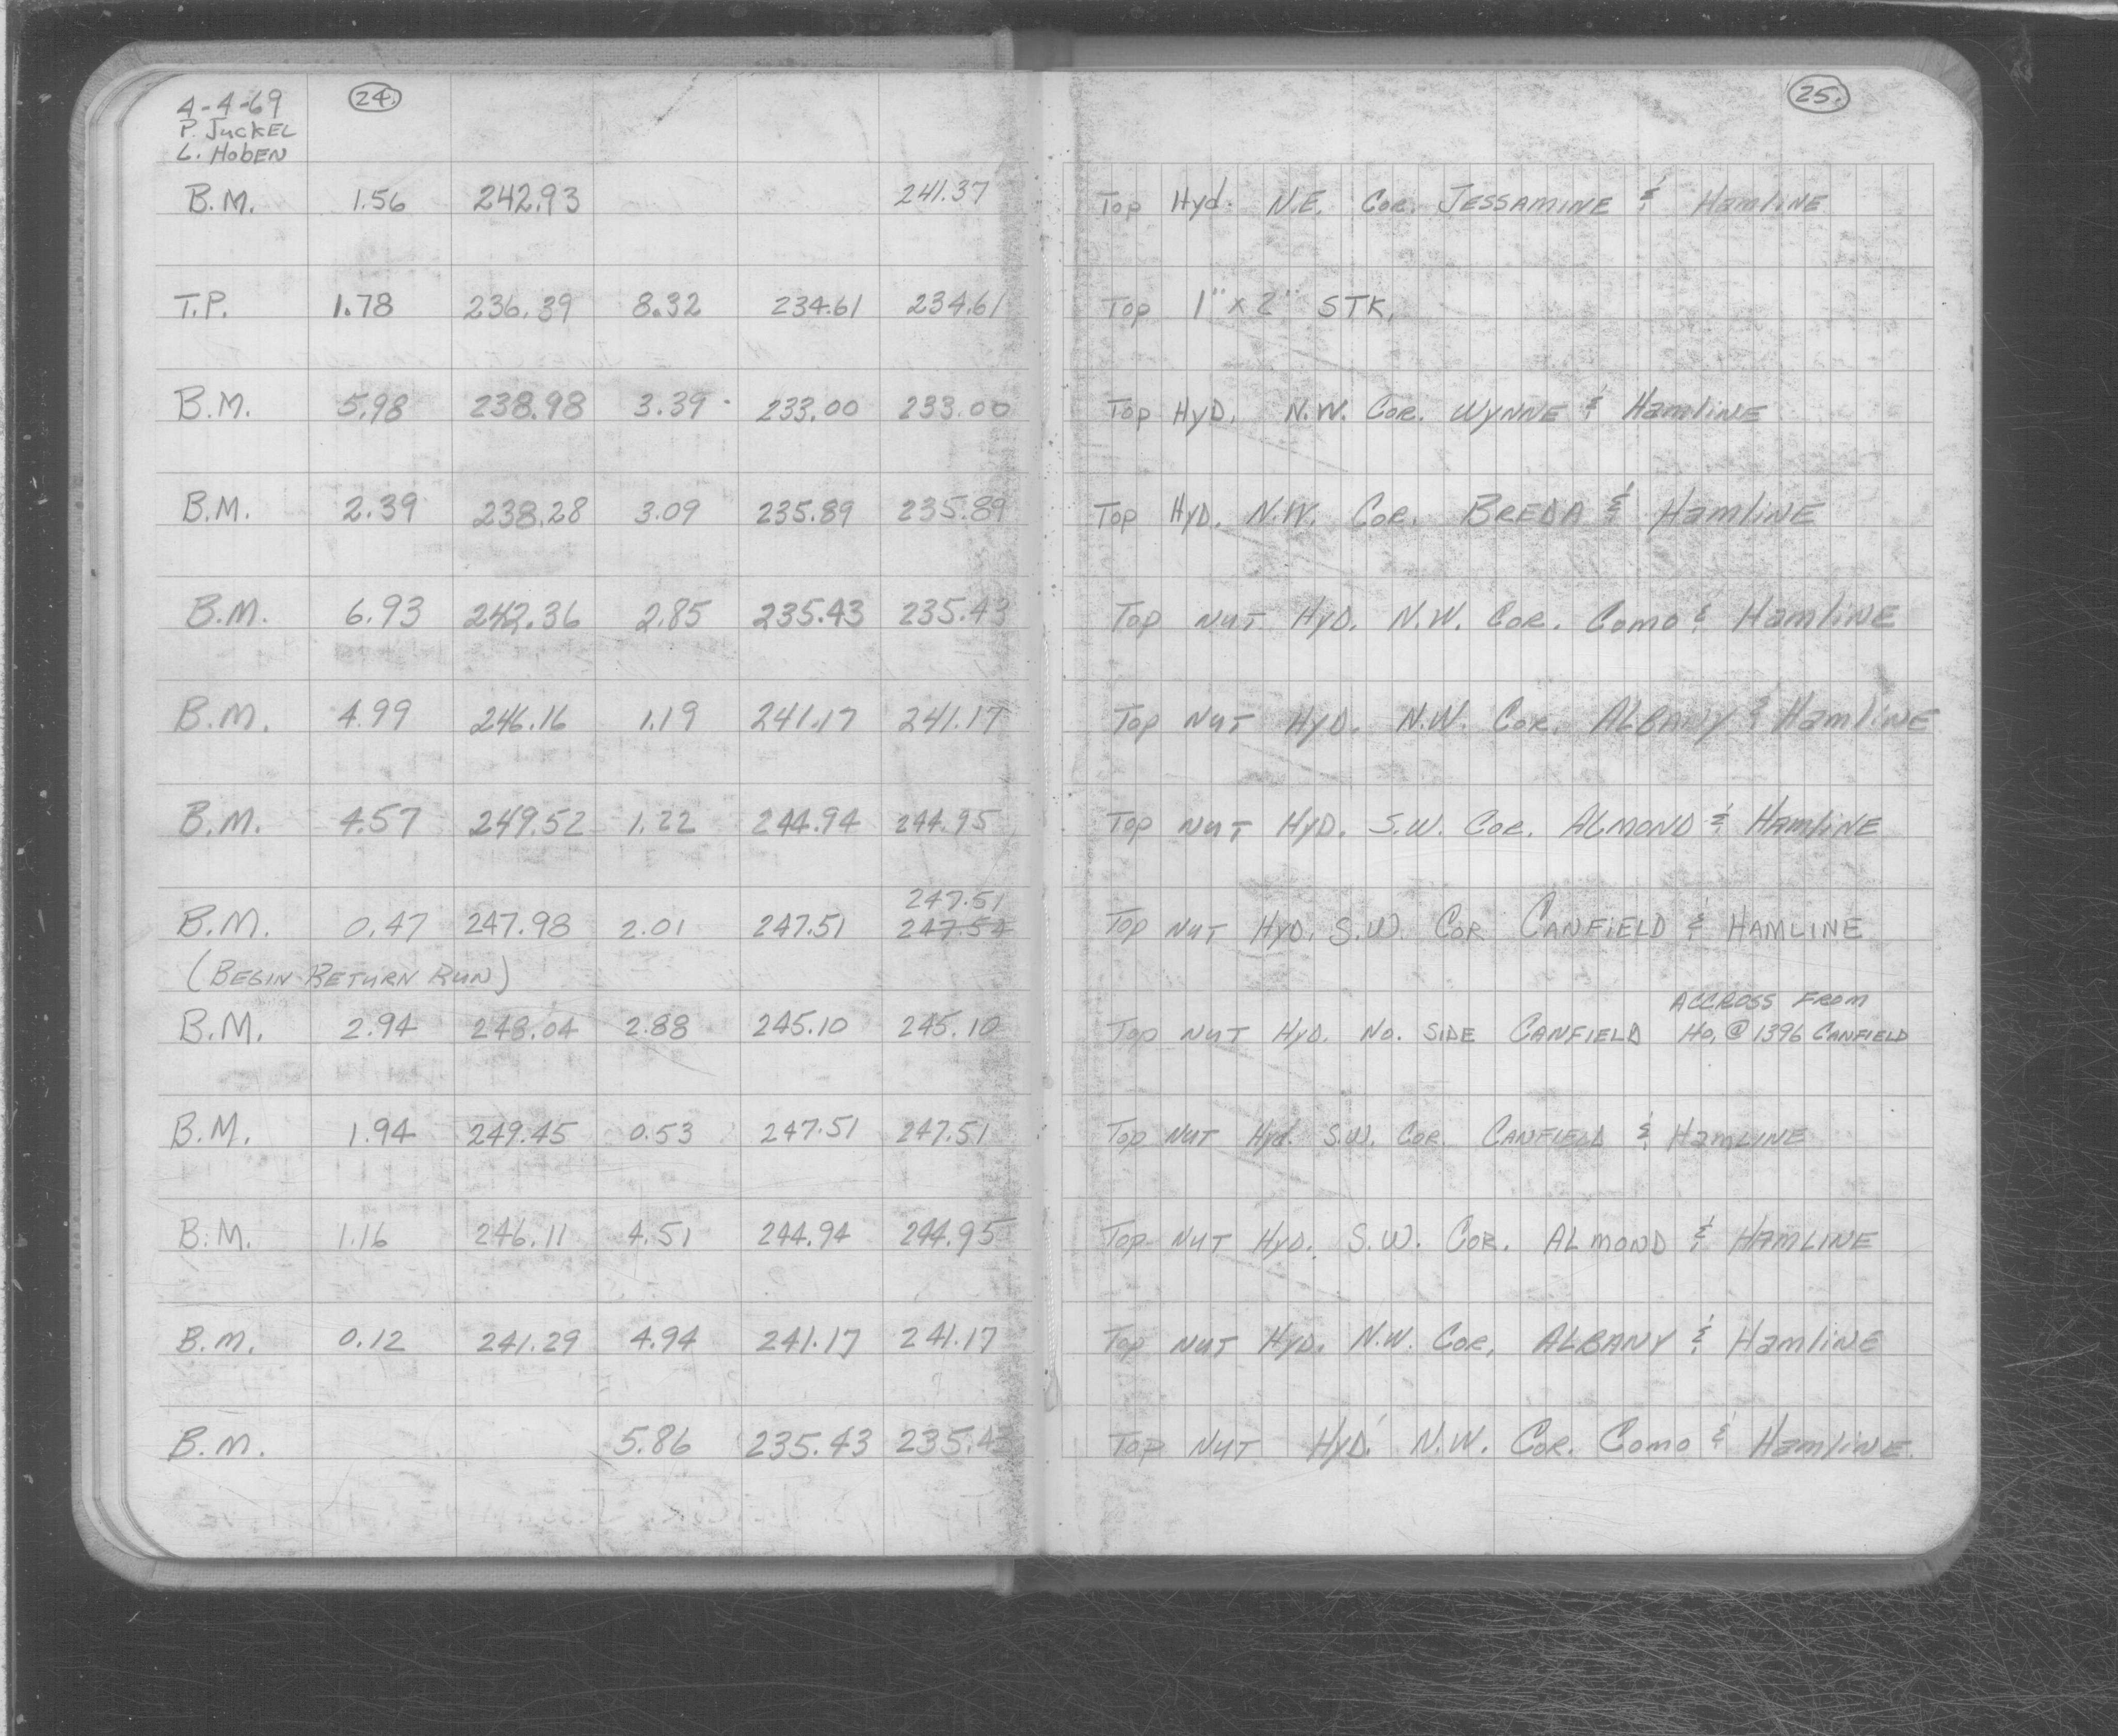 4-4-69 24. 25.
P. Juckel
L. Hoben
B.M. 1.56 242.93 241.37 Top Hyd. N.E. Cor. Jessamine & Hamline
T.P. 1.78 236.39 8.32 234.61 234.61 Top 1" x 2" STK.
B.M. 5.98 238.98 3.39 233.00 233.00 Top Hyd. N.W. Cor. Wynne & Hamline
B.M. 2.39 238.28 3.09 235.89 235.89 Top Hyd. N.W. Cor. Breda & Hamline
B.M. 6.93 242.36 2.85 235.43 235.43 Top Nut Hyd. N.W. Cor. Como & Hamline
B.M. 4.99 246.16 1.19 241.17 241.17 Top Nut Hyd. N.W. Cor. Albany & Hamline
B.M. 4.57 249.52 1.22 244.94 244.95 Top Nut Hyd. S.W. Cor. Almond & Hamline
247.51
B.M. 0.47 247.98 2.01 247.51 247.54 Top Nut Hyd. S.W. Cor Canfield & Hamline
(Begin Return Run)
Accross From
B.M. 2.94 248.04 2.88 245.10 245.10 Top Nut Hyd. No. Side Canfield Ho. @ 1396 Canfield
B.M. 1.94 249.45 0.53 247.51 247.51 Top Nut Hyd. S.W. Cor. Canfield & Hamline
B.M. 1.16 246.11 4.51 244.94 244.95 Top Nut Hyd. S.W. Cor. Almond & Hamline
B.M. 0.12 241.29 4.94 241.17 241.17 Top Nut Hyd. N.W. Cor. Albany & Hamline
B.M. 5.86 235.43 235.43 Top Nut Hyd. N.W. Cor. Como & Hamline.